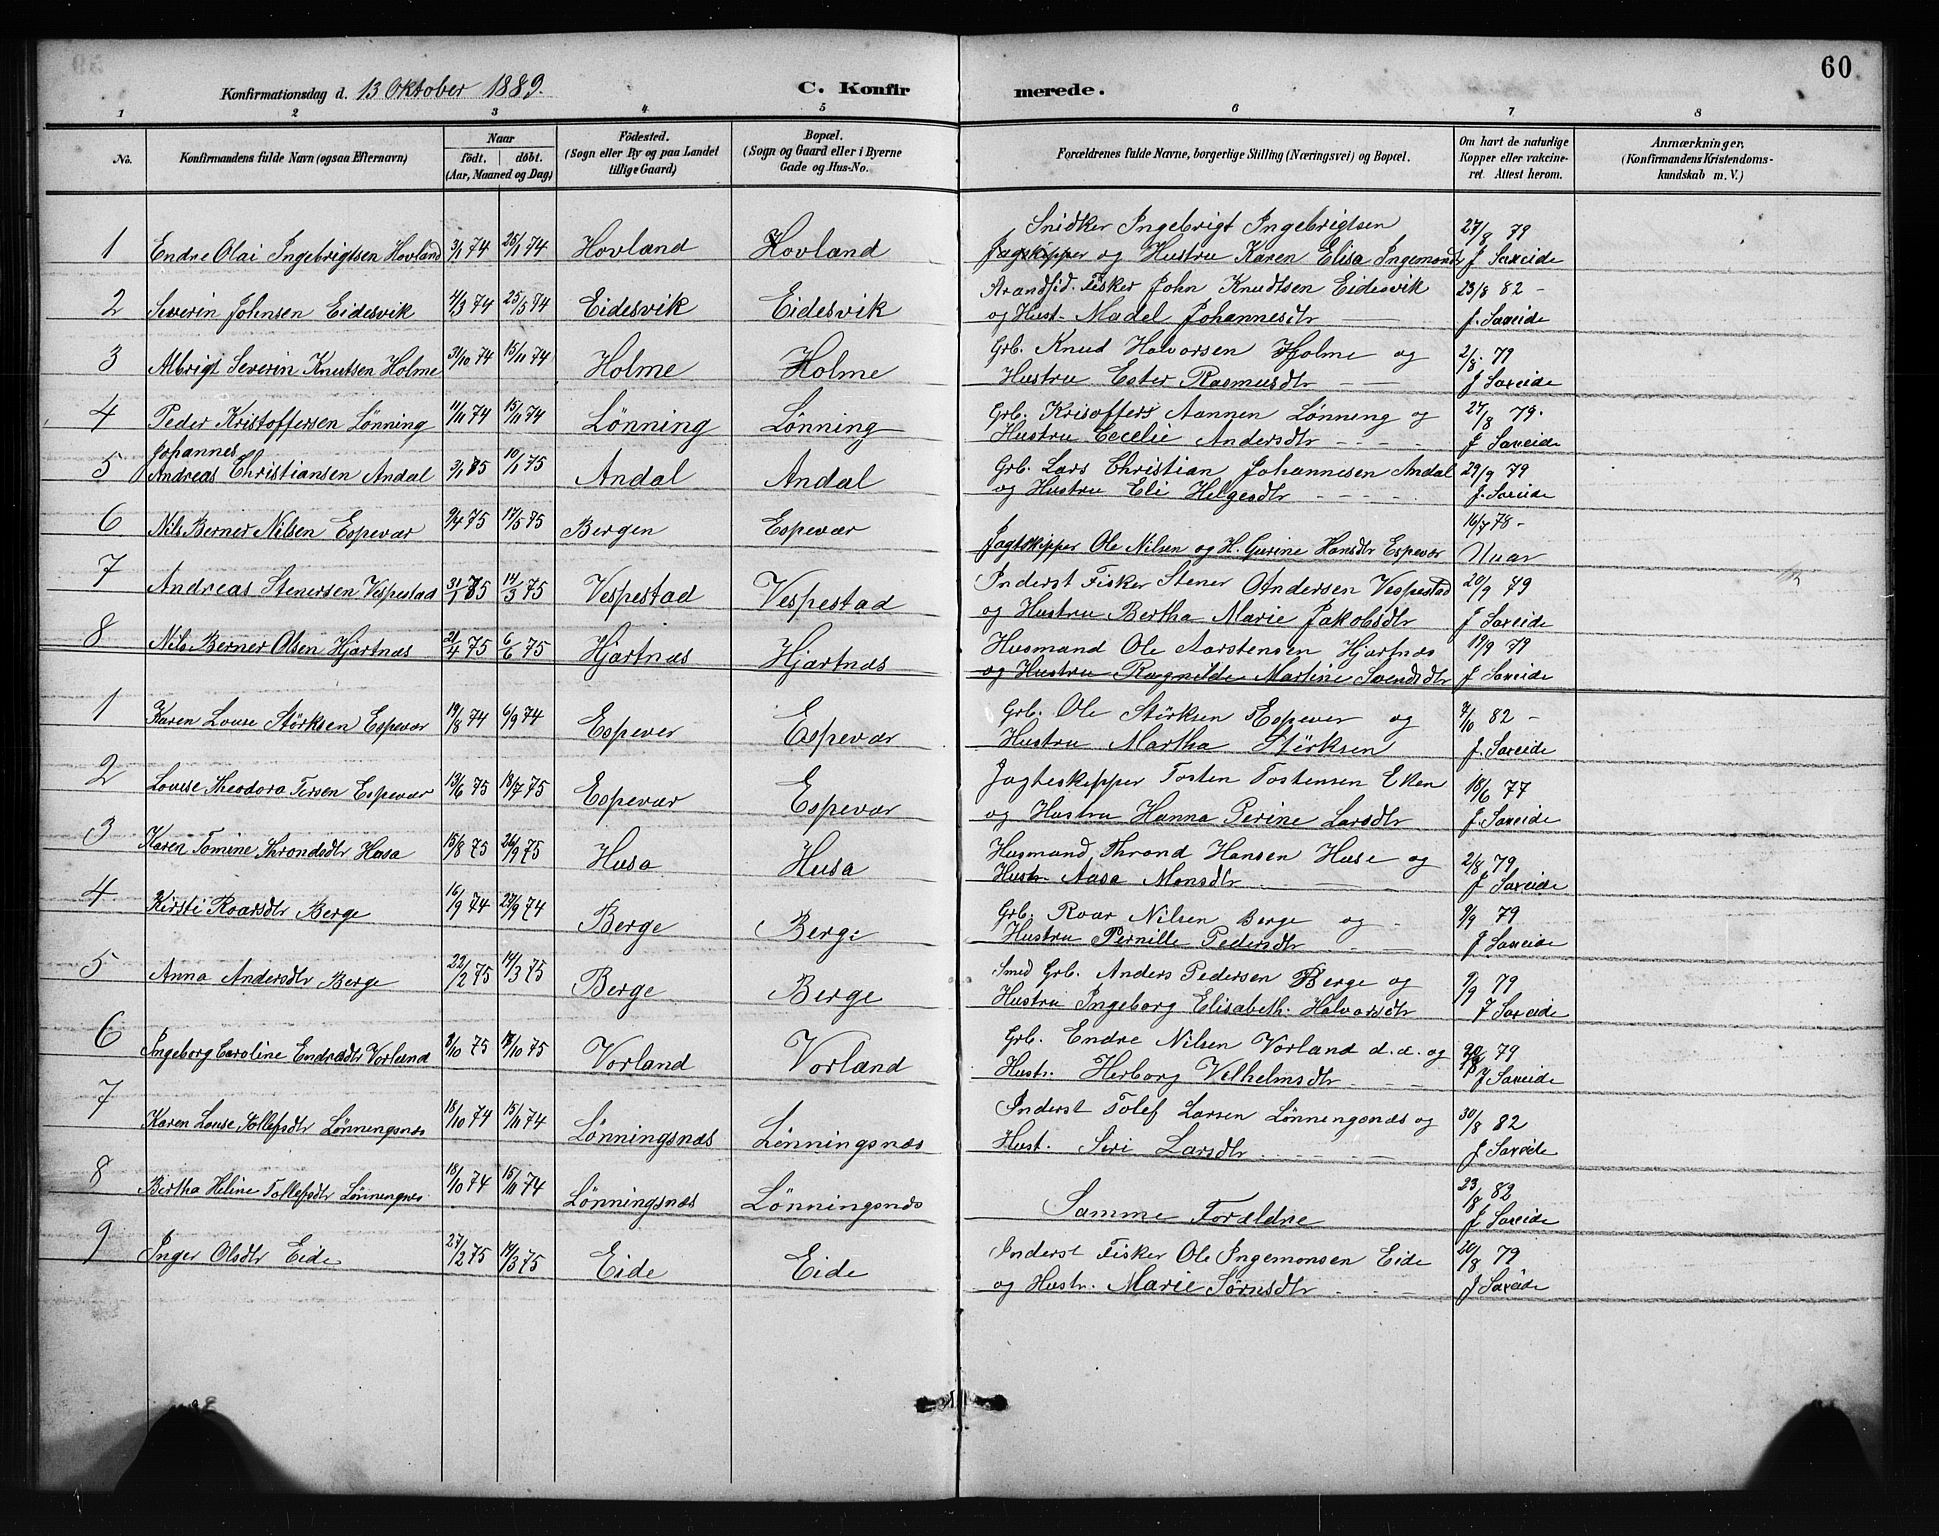 60
Konfirmationsdag d. 13 Oktober 1889.
C. Konfirmerede.
1 2 3 4 5 6 7 8
No.
Konfirmandens fulde Navn (ogsaa Efternavn)
Naar
födt. döbt.
(Aar, Maaned og Dag)
Födested.
(Sogn eller By og paa Landet
tillige Gaard)
Bopæl.
(Sogn og Gaard eller i Byerne
Gade og Hus-No.
Forældrenes fulde Navne, borgerlige Stilling (Næringsvei) og Bopæl.
Om havt de naturlige
Kopper eller vakcine-
ret. Attest herom.
Anmærkninger.
(Konfirmandens Kristendoms-
kundskab m. V.)
Snidker Ingebrigt Ingebrigtsen 27/8 79
1 Endre Olai Ingebrigtsen Hovland 3/1 74 25/1 74 Hovland Hovland Jagtskipper og Hustru Karen Elisa Ingemondr J Saxeide
Fisker John Knudtsen Eidesvik 23/8 82 -
2 Severin Johnsen Eidesvik 4/3 74 25/5 74 Eidesvik Eidesvik og Hust. Madel Johannesdtr J. Saxeide
Grb. Knud Halvorsen Holme og 2/8. 79
3 Albrigt Severin Knutsen Holme 31/10 74 15/11 74 Holme Holme Hustru Ester Rasmusdtr J Saxeide
Grb. Krisoffers Aannen Lønning og 27/8 79.
4 Peder Kristoffersen Lönning 11/11 74 15/11 74 Lönning Lönning Hustru Cecelie Andersdtr J Saxeide
Johannes
5 Andreas Christiansen Andal 2/1 75 10/1 75 Andal Andal Grb. Lars Christian Johannesen Andal 29/9 79
og Hustru Eli Helgesdtr J. Saxeide
6 Nils Berner Nilsen Espevær 9/4 75 17/5 75 Bergen Espevær 16/7 78 -
Jagtskipper Ole Nilsen og H. Gurine Hansdtr Espevær
7 Andreas Stenersen Vespestad 31/1 75 14/3 75 Vespestad Vespestad Inderst Fisker Stener Andersen Vespestad 20/9 79
og Hustru Bertha Marie Jakobsdtr J Saxeide
8 Nils Berner Olsen Hjartnæs 21/4 75 6/6 75 Hjartnæs Hjartnæs Husmand Ole Aarstensen Hjartnæs 19/9 79
og Hustru Ragnilde Martine Svendsdtr J Saxeide
1 Karen Louse Störksen Espevær 19/8 74 6/9 74 Espever Espevær Grb. Ole Störksen Espever og 7/10 82 -
Hustru Martha Störksen J. Saxeide
2 Louise Theodora Torsen Espevær 13/6 75 18/7 75 Espevær Espevær Jagteskipper Tosten Tostensen Eken 18/6 77
og Hustru Hanna Perine Larsdtr J. Saxeide
3 Karen Tomine Throndsdtr Husa 15/8 75 26/9 75 Husa Husa Husmand Thrond Hansen Huse og 2/8 79
Hustr. Aasa Monsdtr J Saxeide
4 Kirsti Roarsdtr Berge 16/9 74 27/9 74 Berge Berge Grb. Roar Nilsen Berge og 9/9 79
Hustru Pernille Pedersdtr J Saxeide
5 Anna Andersdtr Berge 22/2 75 14/3 75 Berge Berge Smed Grb. Anders Pedersen Berge og 9/9 79
Hustru Ingeborg Elisabeth. Halvorsdtr J Saxeide
6 Ingeborg Caroline Endredtr Vorland 3/10 75 17/10 75 Vorland Vorland Grb. Endre Nilsen Vorland d.d. og 79
Hustr. Herborg Vilhelmsdtr J Saxeide
7 Karen Louse Tollefsdtr Lönningsnæs 18/10 74 15/11 74 Lönningsnæs Lönningsnæs Inderst Tolef Larsen Lønnengsnæs og 30/8 82
Hust. Siri Larsdtr J Saxeide
8 Bertha Heline Tollefsdtr Lönnengnes 18/10 74 15/11 74 Lönningsnæs Lönningsnæs 23/8 82
Samme Forældre J Saxeide
9 Inger Olsdtr Eide 27/2 75 14/3 75 Eide Eide Inderst Fisker Ole Ingemonsen Eide 20/8 79
og Hustr. Marie Sörnsdtr J Saxeide